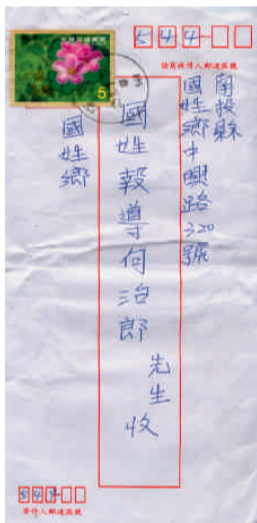 544
請寫收件人郵遞區號
南投縣
國姓鄉中興路320號
國姓報導何治郎
先生收
國姓鄉
5
544
寄件人郵遞區號